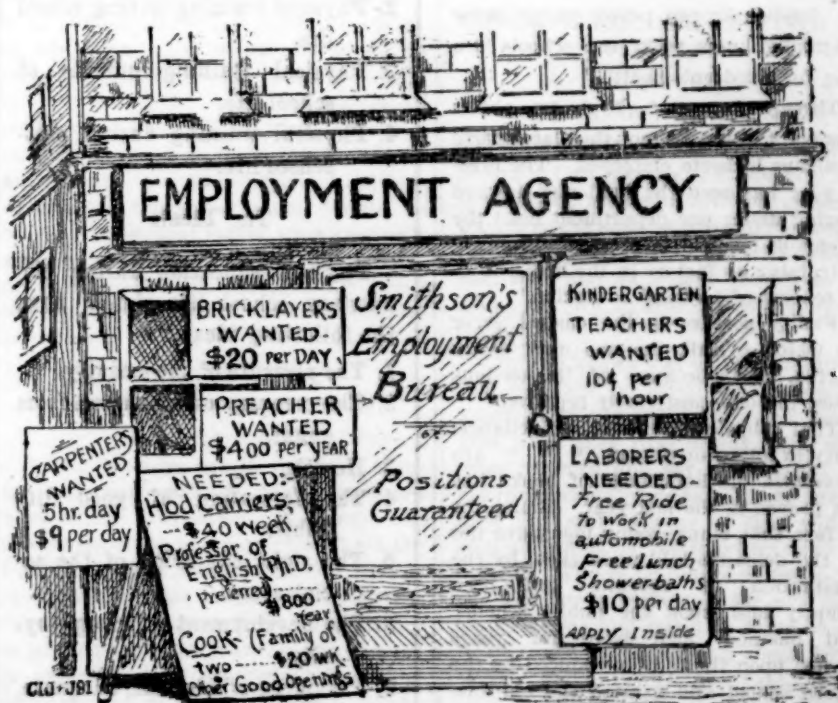 EMPLOYMENT AGENCY
BRICKLAYERS
WANTED
$20 per DAY
PREACHER
WANTED
$400 per YEAR
CARPENTERS
WANTED
5hr. day
$9 per day
NEEDED:-
Hod Carriers,
--- $40 week
Professor of
English (Ph.D.
Preferred)
$800
Year
Cook- (Family of
two ---- $20 wk.
Other Good Openings
Smithson's
Employment
Bureau
Positions
Guaranteed
KINDERGARTEN
TEACHERS
WANTED
10¢ per
hour
LABORERS
-NEEDED-
Free Ride
to work in
automobile
Free lunch
Showerbaths
$10 per day
APPLY, Inside